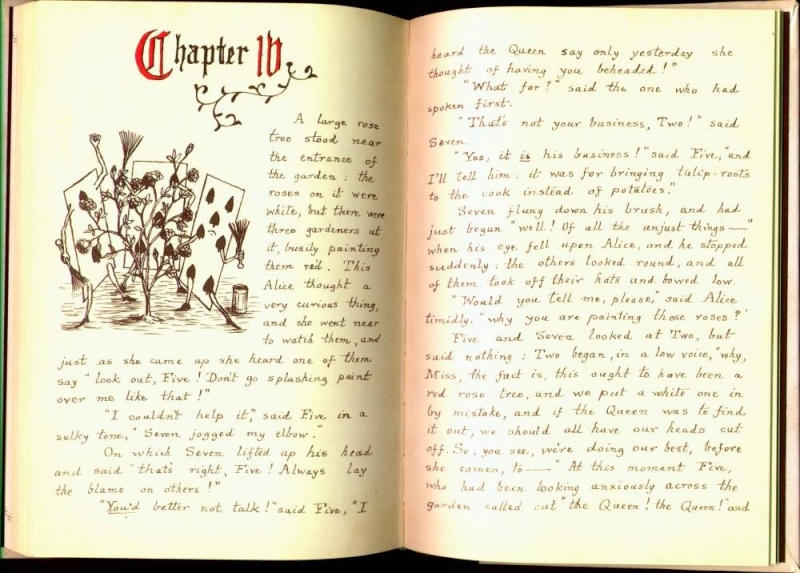 Chapter IV
A large rose
tree stood near
the entrance of
the garden : the
roses on it were
white, but there were
three gardeners at
it, busily painting
them red. This
Alice thought a
very curious thing,
and she went near
to watch them, and
just as she came up she heard one of them
say "look out, Five! Don't go splashing paint
over me like that!"
"I couldn't help it," said Five in a
sulky tone, "Seven jogged my elbow."
On which Seven lifted up his head
and said "that's right, Five! Always lay
the blame on others!"
"You'd better not talk!" said Five, "I
heard the Queen say only yesterday she
thought of having you beheaded!"
"What for?" said the one who had
spoken first.
"That's not your business, Two!" said
Seven.
"Yes, it is his business!" said Five, "and
I'll tell him : it was for bringing tulip-roots
to the cook instead of potatoes."
Seven flung down his brush, and had
just begun "well! Of all the unjust things—"
when his eye fell upon Alice, and he stopped
suddenly ; the others looked round, and all
of them took off their hats and bowed low.
"Would you tell me, please," said Alice
timidly, "why you are painting those roses?"
Five and Seven looked at Two, but
said nothing : Two began, in a low voice, "why,
Miss, the fact is, this ought to have been a
red rose tree, and we put a white one in
by mistake, and if the Queen was to find
it out, we should all have our heads cut
off. So, you see, we're doing our best, before
she comes, to—" At this moment Five,
who had been looking anxiously across the
garden called out "the Queen! the Queen!" and